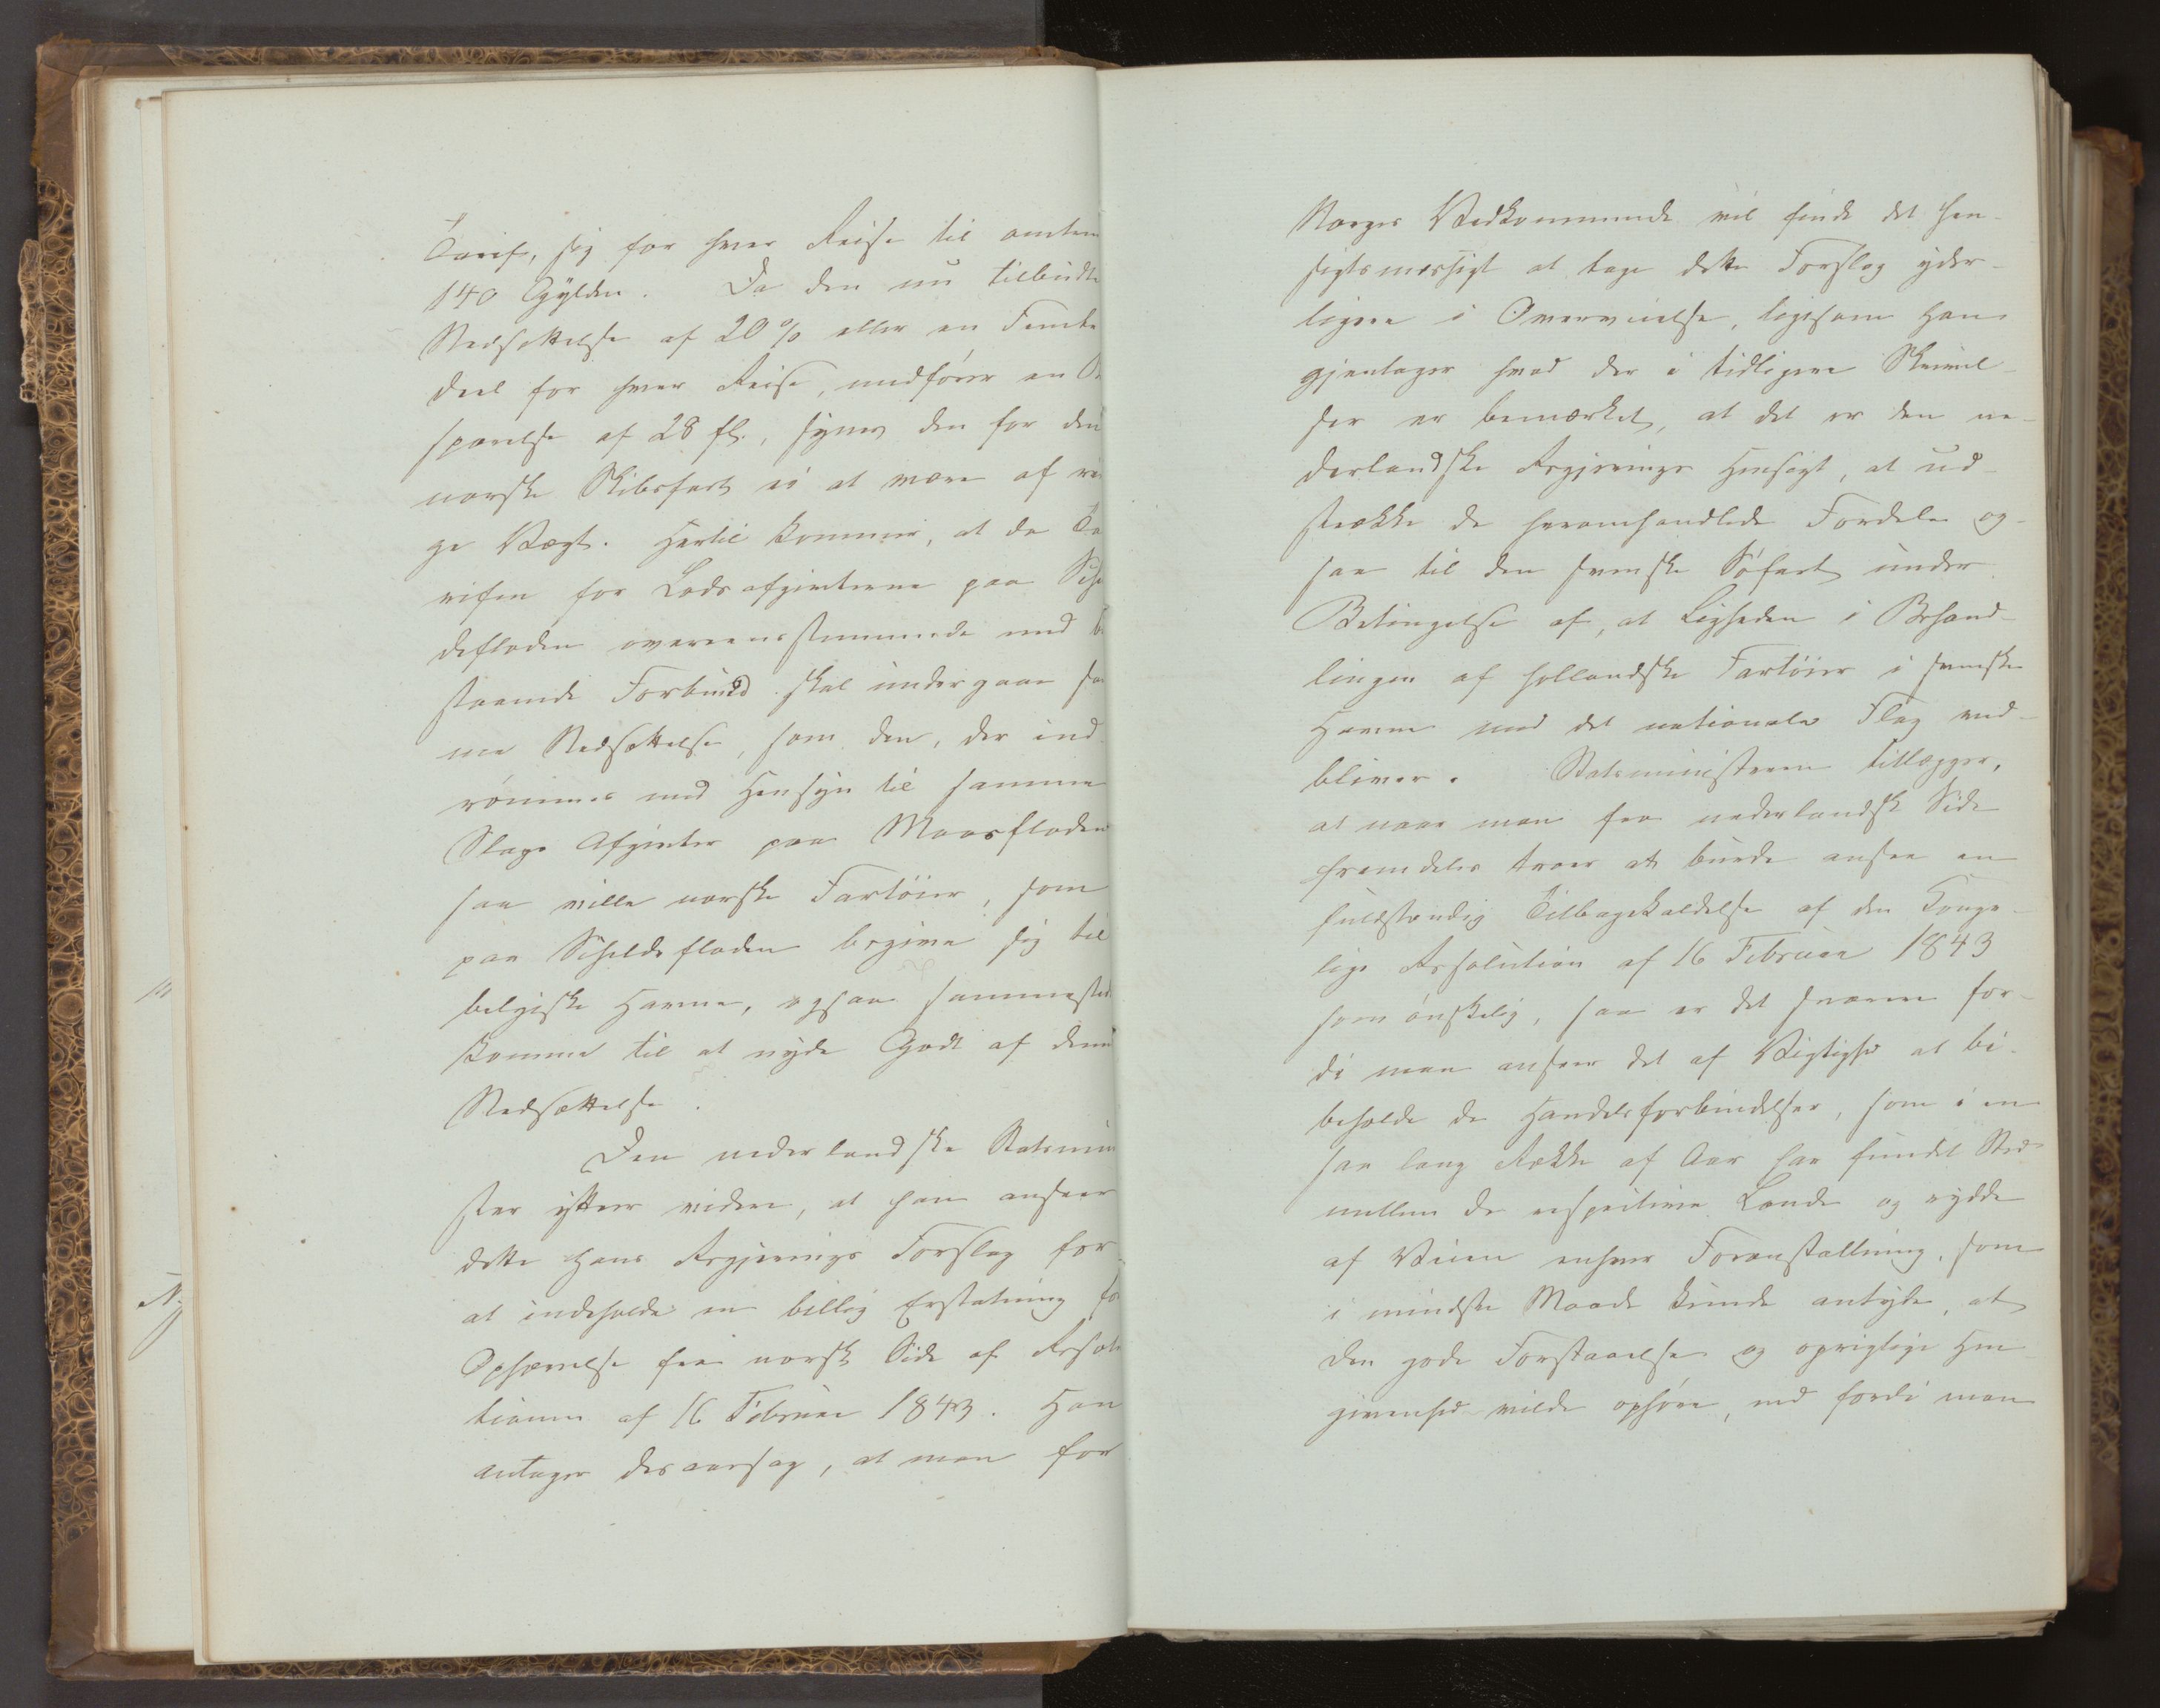 Tarif, sig for hver Reise til omtrent
140 Gylden. Da den nu tilbudte
Nedsættelse af 20 % eller en Femte
deel for hver Reise, medfører en Be
sparelse af 28 fl., synes den for den
norske Skibsfart ei at være af rin
ge Vægt. Hertil kommer, at da Ta
rifen for Lodsafgivterne paa Schel
defloden overeensstemmende med be
staaende Forbund skal undergaae sam
me Nedsættelse, som den, der ind
rømmes med Hensyn til samme
Slags Afgivter paa Maasfloden
saa ville norske Fartøier, som
paa Scheldefloden begive sig til
belgiske Havne, ogsaa sammesteds
komme til at nyde Godt af denne
Nedsættelse.
Den nederlandske Statsmini
ster yttrer videre, at han anseer
dette Hans Regjerings Forslag for
at indeholde en billig Erstatning for
Ophævelse fra norsk Side af Resolu
tionen af 16 Februar 1843. Han
antager desaarsag, at man for
Norges Vedkommende vil finde det hen-
sigtsmæssigt at tage dette Forslag yder-
ligere i Overveielse, ligesom Han
gjentager hvad der i tidligere Skrivel-
ser er bemærket, at det er den ne-
derlandske Regjerings Hensigt, at ud-
strække de heromhandlede Fordele og-
saa til den svenske Søfart under
Betingelse af, at Ligheden i Behand-
lingen af hollandske Fartøier i svenske
Havne med det nationale Flag ved-
bliver. Statsministeren tillægger,
at naar man fra nederlandsk Side
fremdeles troer at burde ansee en
fuldstændig Tilbagekaldelse af den Konge-
lige Resolution af 16 Februar 1843
som ønskelig, saa er det saavel for-
di man anseer det af Vigtighed at bi-
beholde de Handelsforbindelser, som i en
saa lang Række af Aar har fundet Sted
mellem de respective Lande og rydde
af Veien enhver Foranstaltning, som
i mindste Maade kunde antyde, at
den gode Forstaaelse og oprigtige Hen
givenhed vilde ophøre, med fordi man